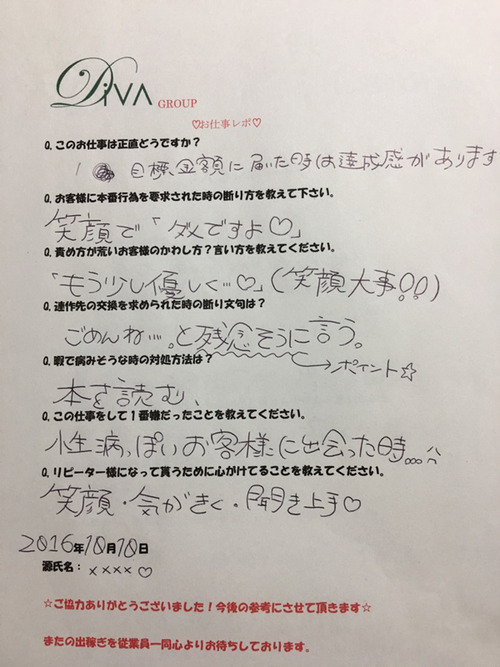 DiVA GROUP
♡お仕事レポ♡
Q. このお仕事は正直どうですか?
目標金額に届いた時は達成感があります
Q. お客様に本番行為を要求された時の断り方を教えて下さい。
笑顔で「ダメですよ♡」
Q. 責め方が荒いお客様のかわし方?言い方を教えてください。
「もう少し優しく…♡」(笑顔大事!!)
Q. 連作先の交換を求められた時の断り文句は?
ごめんね…。と残念そうに言う。
→ポイント☆
Q. 暇で病みそうな時の対処方法は?
本を読む、
Q. この仕事をして1番嫌だったことを教えてください。
性病っぽいお客様に出会った時…
Q. リピーター様になって貰うために心がけてることを教えてください。
笑顔・気がきく・聞き上手♡
2016年10月10日
源氏名: xxxx♡
☆ご協力ありがとうございました!今後の参考にさせて頂きます☆
またの出稼ぎを従業員一同心よりお待ちしております。